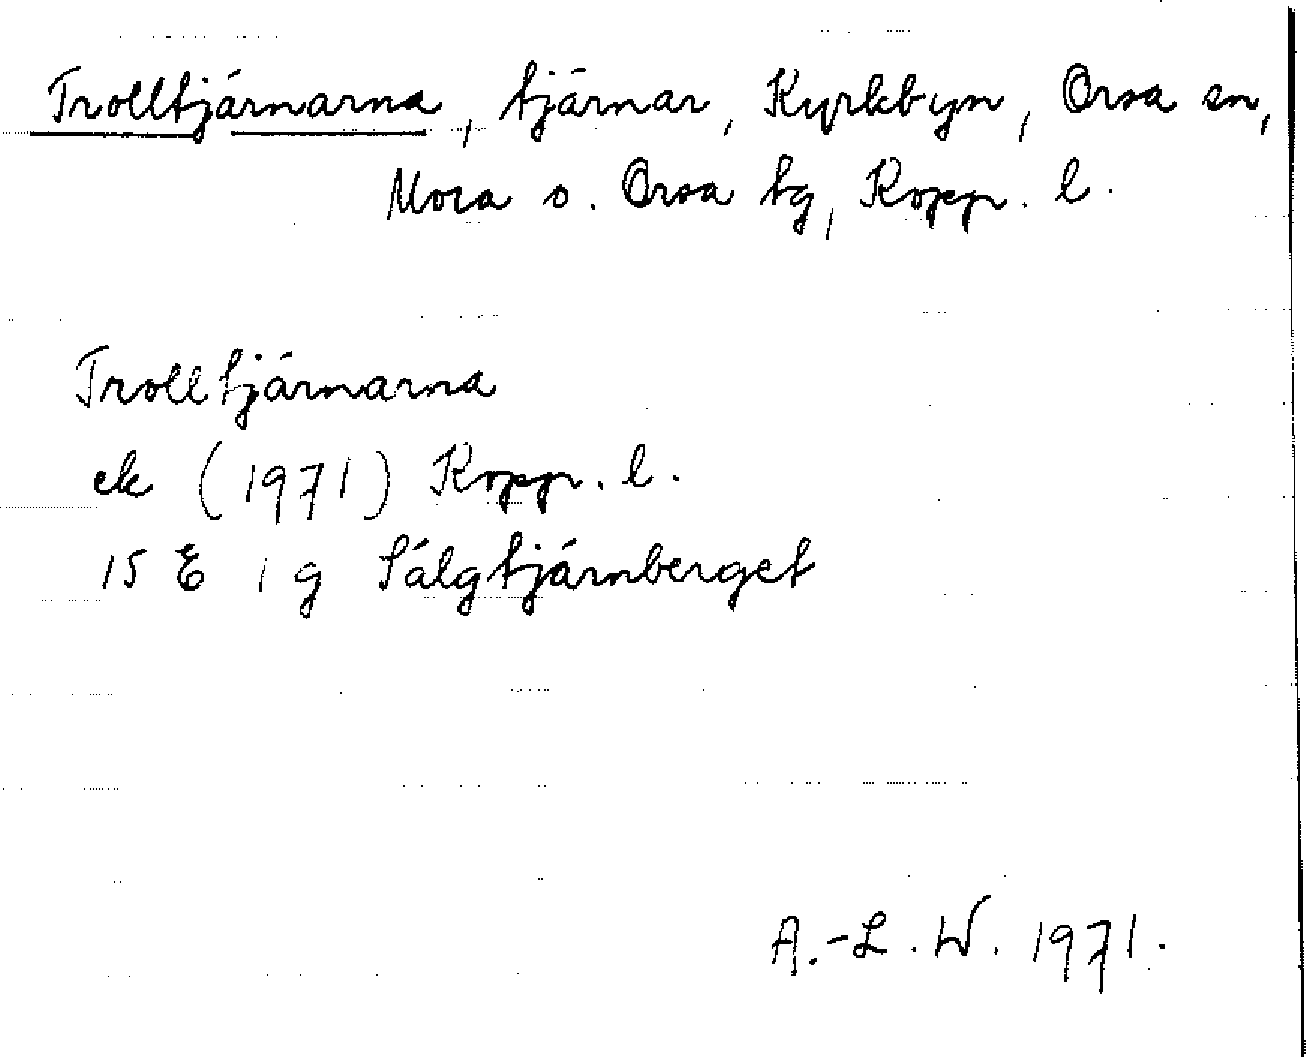 Trolltjärnarna, tjärnar, Kyrkbyn, Orsa sn,
Mora o. Orsa tg, Kopp. l.
Trolltjärnarna
ek (1971) Kopp. l.
15 E 1 g Sälgtjärnberget
A.-L. W. 1971.